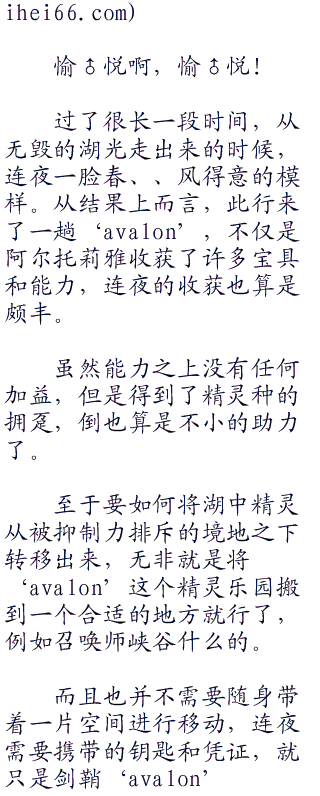 ihei66.com)
愉♂悦啊，愉♂悦！
过了很长一段时间，从
无毁的湖光走出来的时候，
连夜一脸春、、风得意的模
样。从结果上而言，此行来
了一趟‘avalon’，不仅是
阿尔托莉雅收获了许多宝具
和能力，连夜的收获也算是
颇丰。
虽然能力之上没有任何
加益，但是得到了精灵种的
拥趸，倒也算是不小的助力
了。
至于要如何将湖中精灵
从被抑制力排斥的境地之下
转移出来，无非就是将
‘avalon’这个精灵乐园搬
到一个合适的地方就行了，
例如召唤师峡谷什么的。
而且也并不需要随身带
着一片空间进行移动，连夜
需要携带的钥匙和凭证，就
只是剑鞘‘avalon’